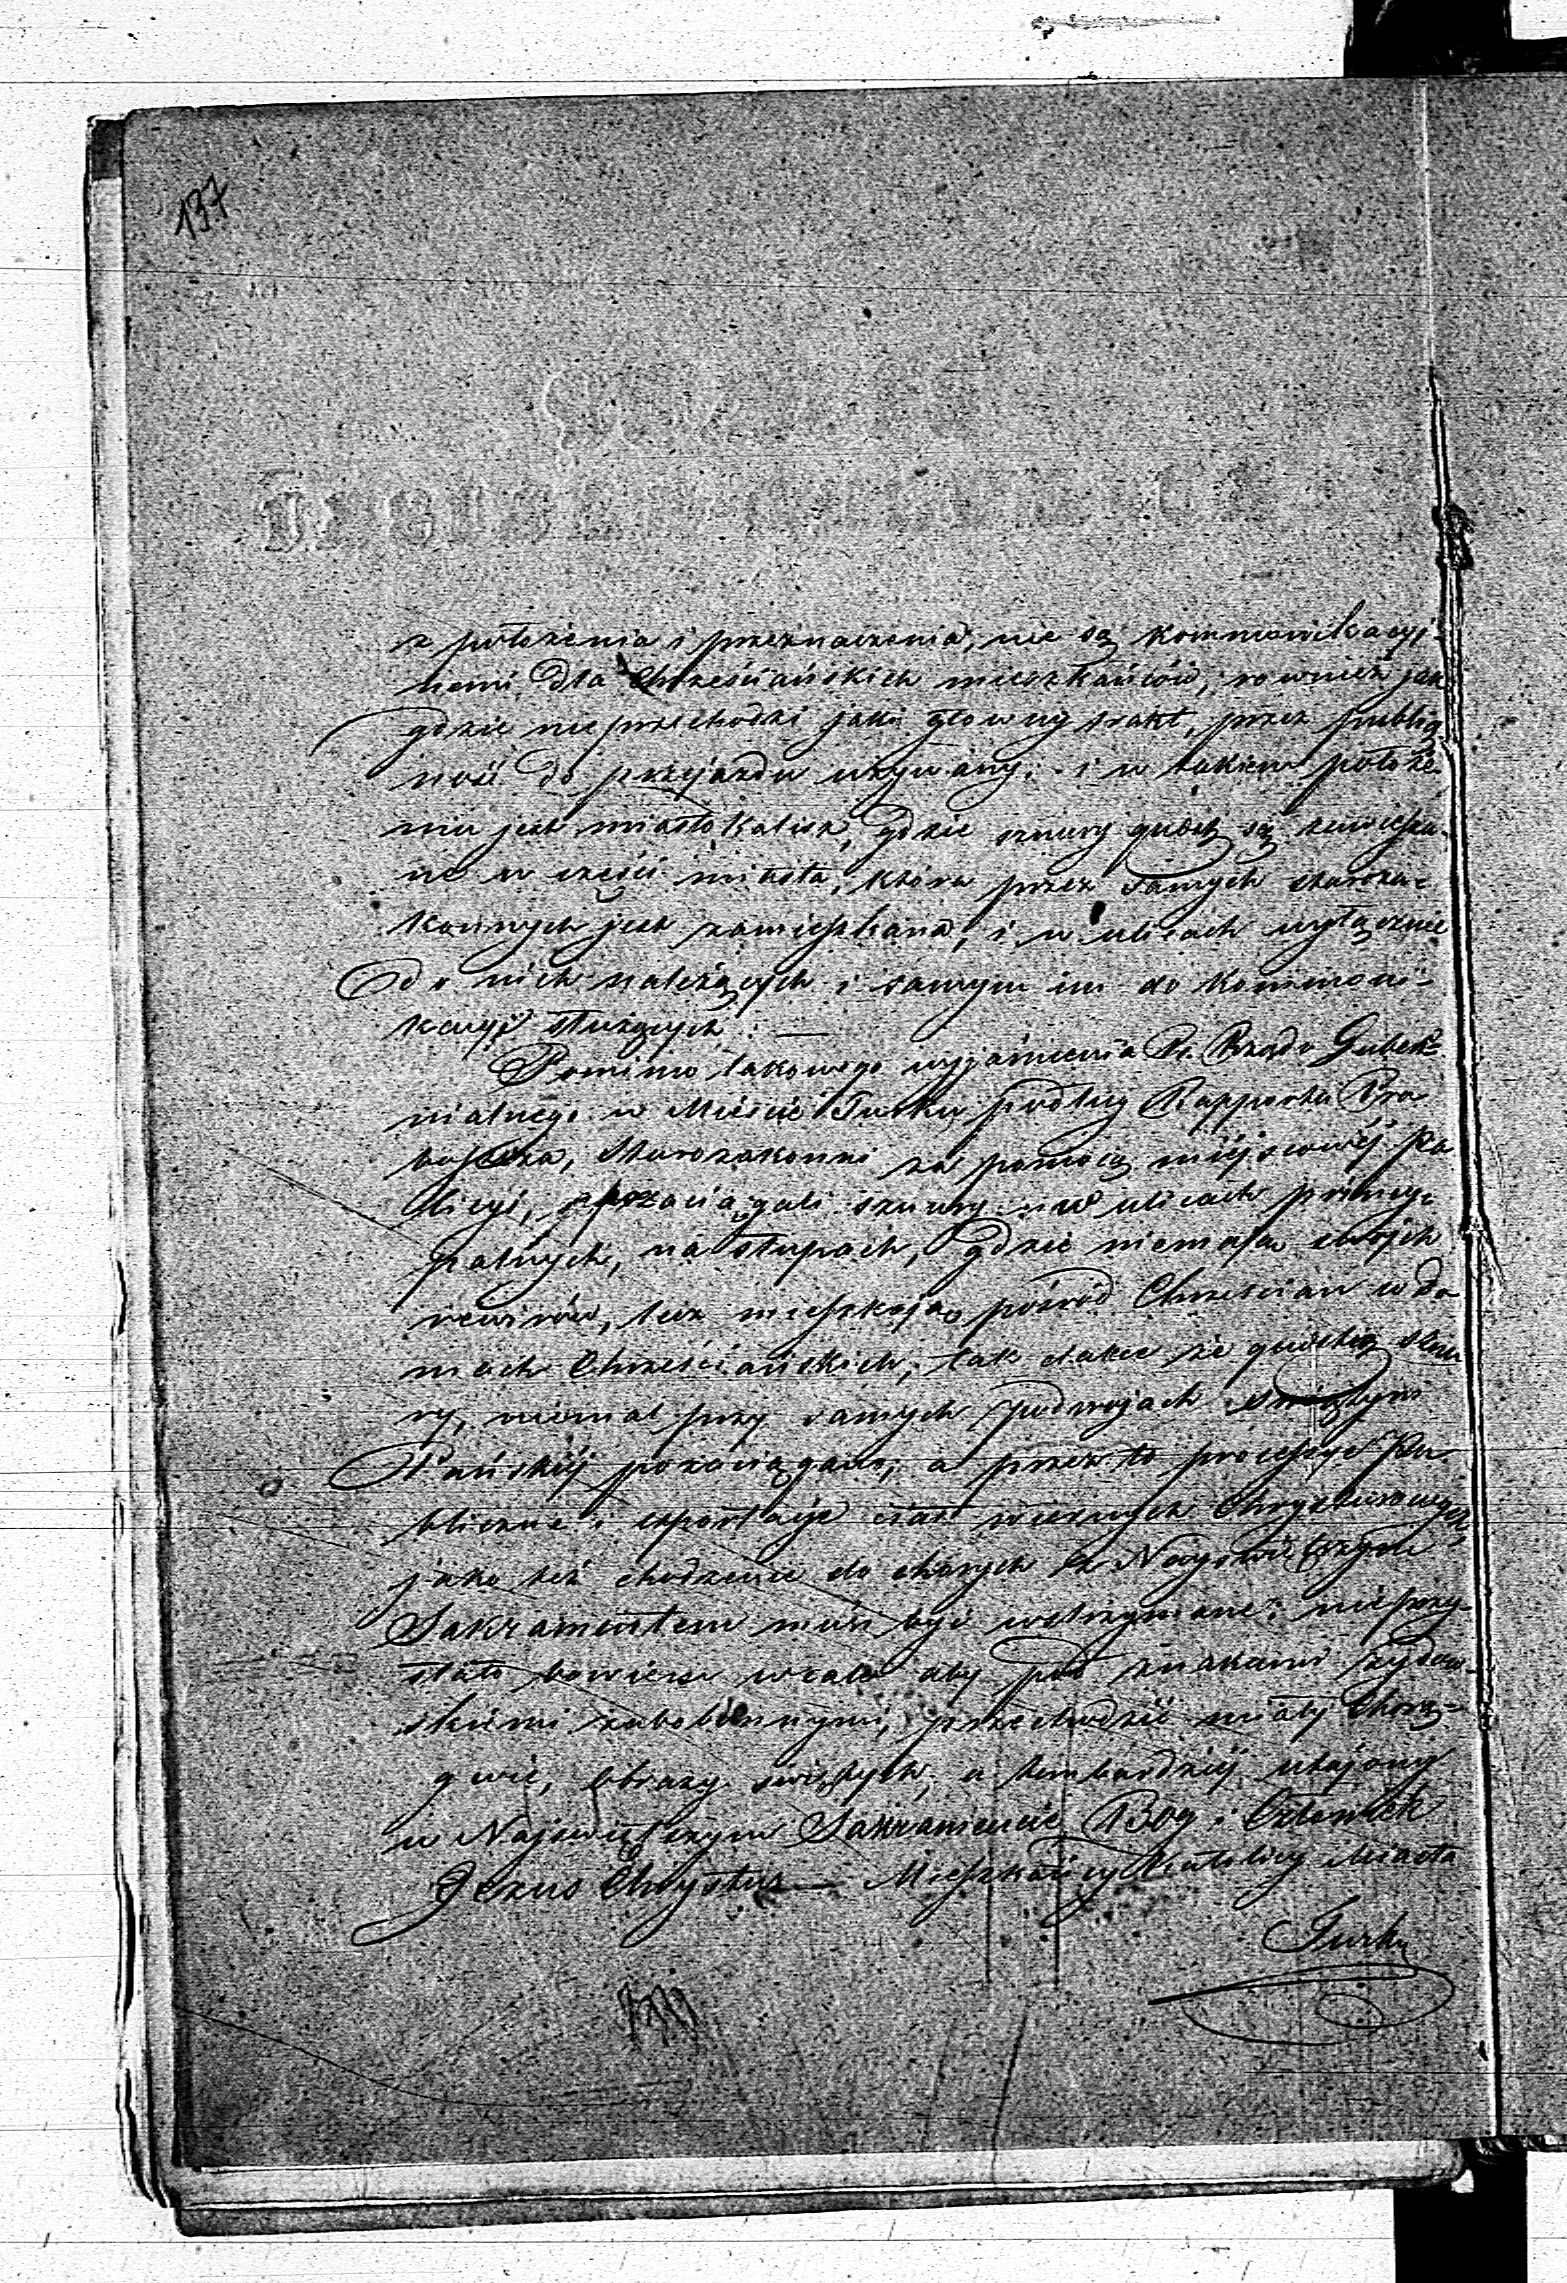 137
z położenia i przeznaczenia, nie są kommunikacyj-
nemi dla Chrześciańskich mieszkańców, rownież jak
gdzie nie przechodzi jako głowny trakt, przez publicz
ność do przejazdu używany; i w takiem położe-
niu jest miasto Kalisz, gdzie sznury są zawiesza-
ne w części miasta, która przez samych staroza-
konnych jest zamieszkana, i w ulicach wyłącznie
do nich należących i samym im do kommuni-
kacyi służących. —
Pomimo takowego wyjaśnienia Rządu Guber-
nialnego w Mieście Turku podług Rapportu Pro-
boszcza, Starozakonni za pomocą miejscowéj Po
licyi, pozaciągali sznury w ulicach pryncy-
palnych, na słupach, gdzie niemają swoich
rewirów, lecz mieszkają pośród Chrześcian w do
mach Chrześciańskich, tak dalece że sznu
ry, niemal przy samych podwojach Świątyni
Pańskiéj pozaciągano, a przez to processye Pu-
bliczne i exportacye ciał wiernych Chrystusowych,
jako też chodzenie do chorych z Nayświętszym
Sakramentem musi być wstrzymane; nieprzy-
stało bowiem wcale aby pod znakami żydow-
skiemi zabobonnymi, przechodzić miały Chorą-
gwie, obrazy świętych, a tembardziéj utajony
w Najświętszym Sakramencie Bóg i Człowiek
Jezus Chrystus — Mieszkańcy Katolicy Miasta
Turku